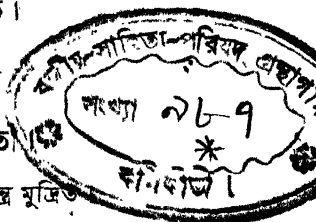 বঙ্গীয়-সাহিত্য-পরিষদ গ্রন্থাগার
সংখ্যা ৯৮৭
কলিকাতা।
মুদ্রিত